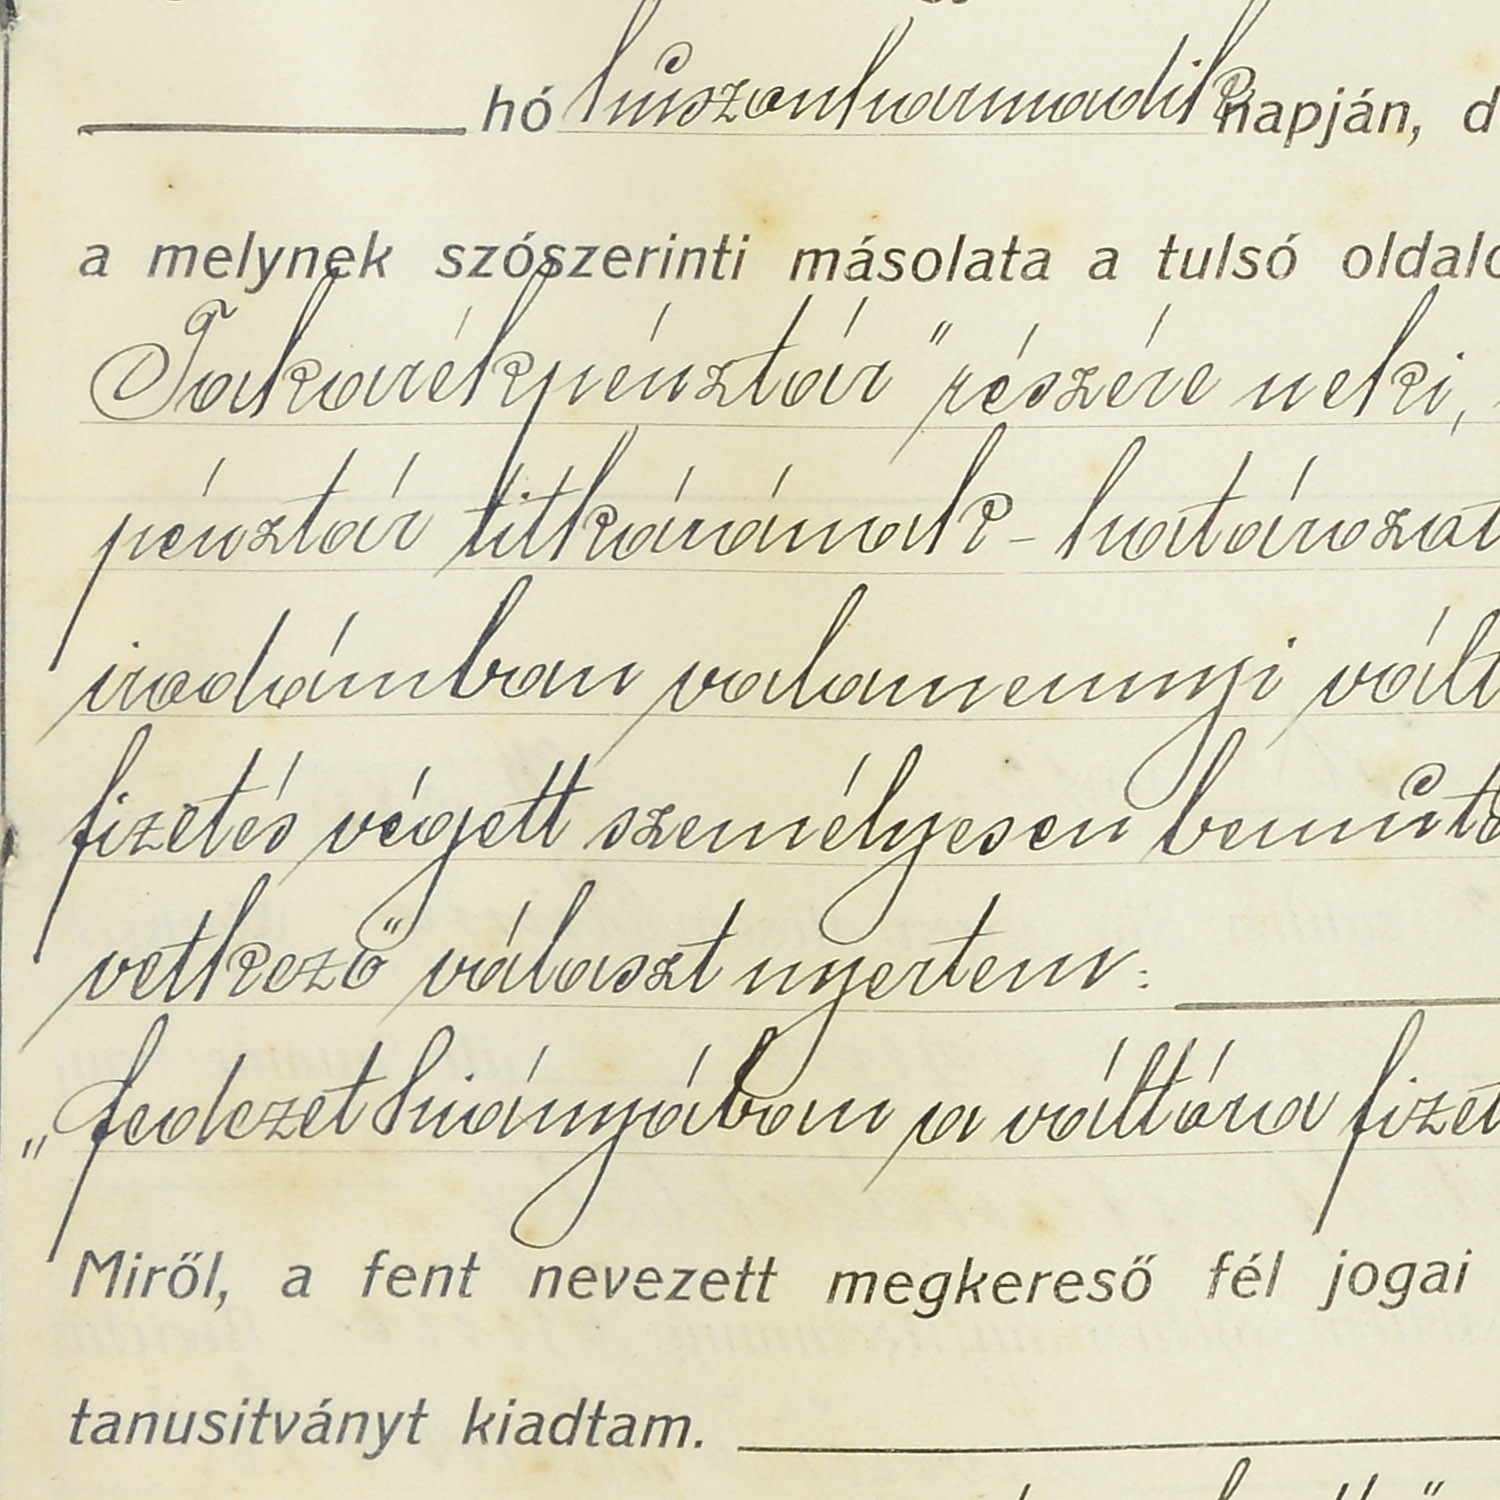 hó huszonharmadik napján, d
a melynek szószerinti másolata a tulsó oldalo
Takarékpénztár" részére neki,
pénztár titkárának - határozat
irodámban valamennyi vált
fizetés végett személyesen bemut
vetkező választ nyertem:
„fedezet hiányában a váltóra fizet
Miről, a fent nevezett megkereső fél jogai
tanusitványt kiadtam.